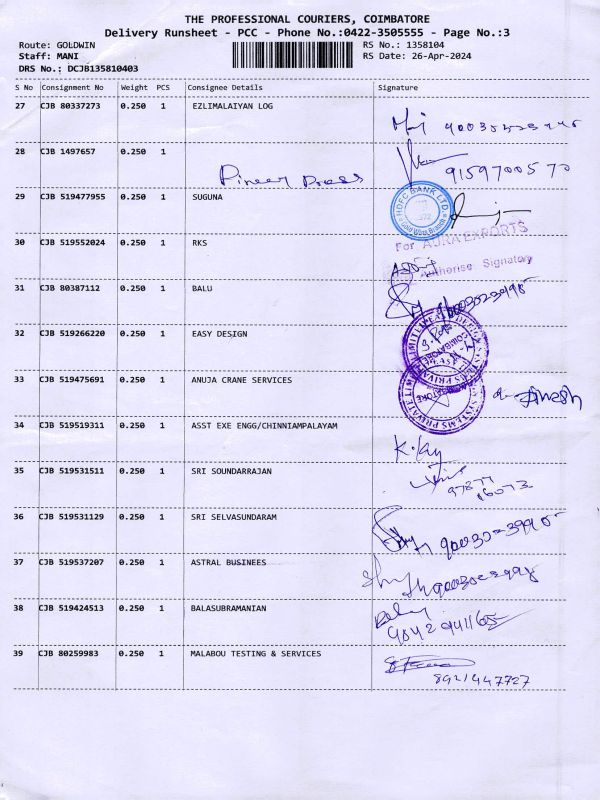 THE PROFESSIONAL COURIERS, COIMBATORE
Delivery Runsheet - PCC - Phone No.:0422-3505555 - Page No.:3
Route: GOLDWIN RS No.: 1358104
Staff: MANI RS Date: 26-Apr-2024
DRS No.: DCJB135810403
S No Consignment No Weight PCS Consignee Details Signature
27 CJB 80337273 0.250 1 EZLIMALAIYAN LOG
28 CJB 1497657 0.250 1
9159700570
29 CJB 519477955 0.250 1 SUGUNA
HDFC BANK LTD
30 CJB 519552024 0.250 1 RKS
For AJRA EXPORTS
Authorise Signatory
31 CJB 80387112 0.250 1 BALU
32 CJB 519266220 0.250 1 EASY DESIGN
COIMBATORE
33 CJB 519475691 0.250 1 ANUJA CRANE SERVICES
SYSTEMS PRIVATE LIMITED
34 CJB 519519311 0.250 1 ASST EXE ENGG/CHINNIAMPALAYAM
35 CJB 519531511 0.250 1 SRI SOUNDARRAJAN
97877
16073
36 CJB 519531129 0.250 1 SRI SELVASUNDARAM
37 CJB 519537207 0.250 1 ASTRAL BUSINEES
38 CJB 519424513 0.250 1 BALASUBRAMANIAN
9842 941165
39 CJB 80259983 0.250 1 MALABOU TESTING & SERVICES
8921447727